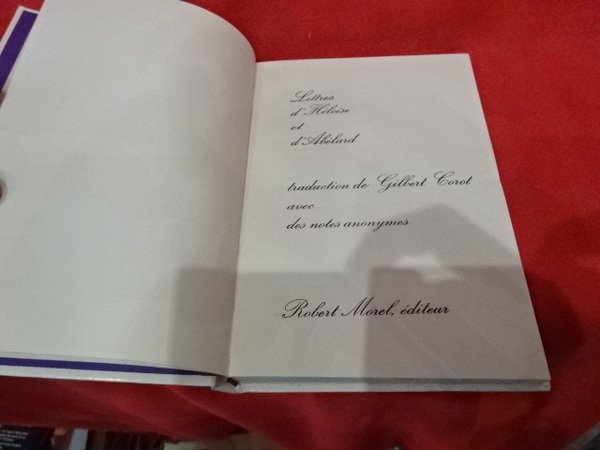 Lettres
d'Héloïse
et
d'Abélard
traduction de Gilbert Corot
avec
des notes anonymes
Robert Morel, éditeur